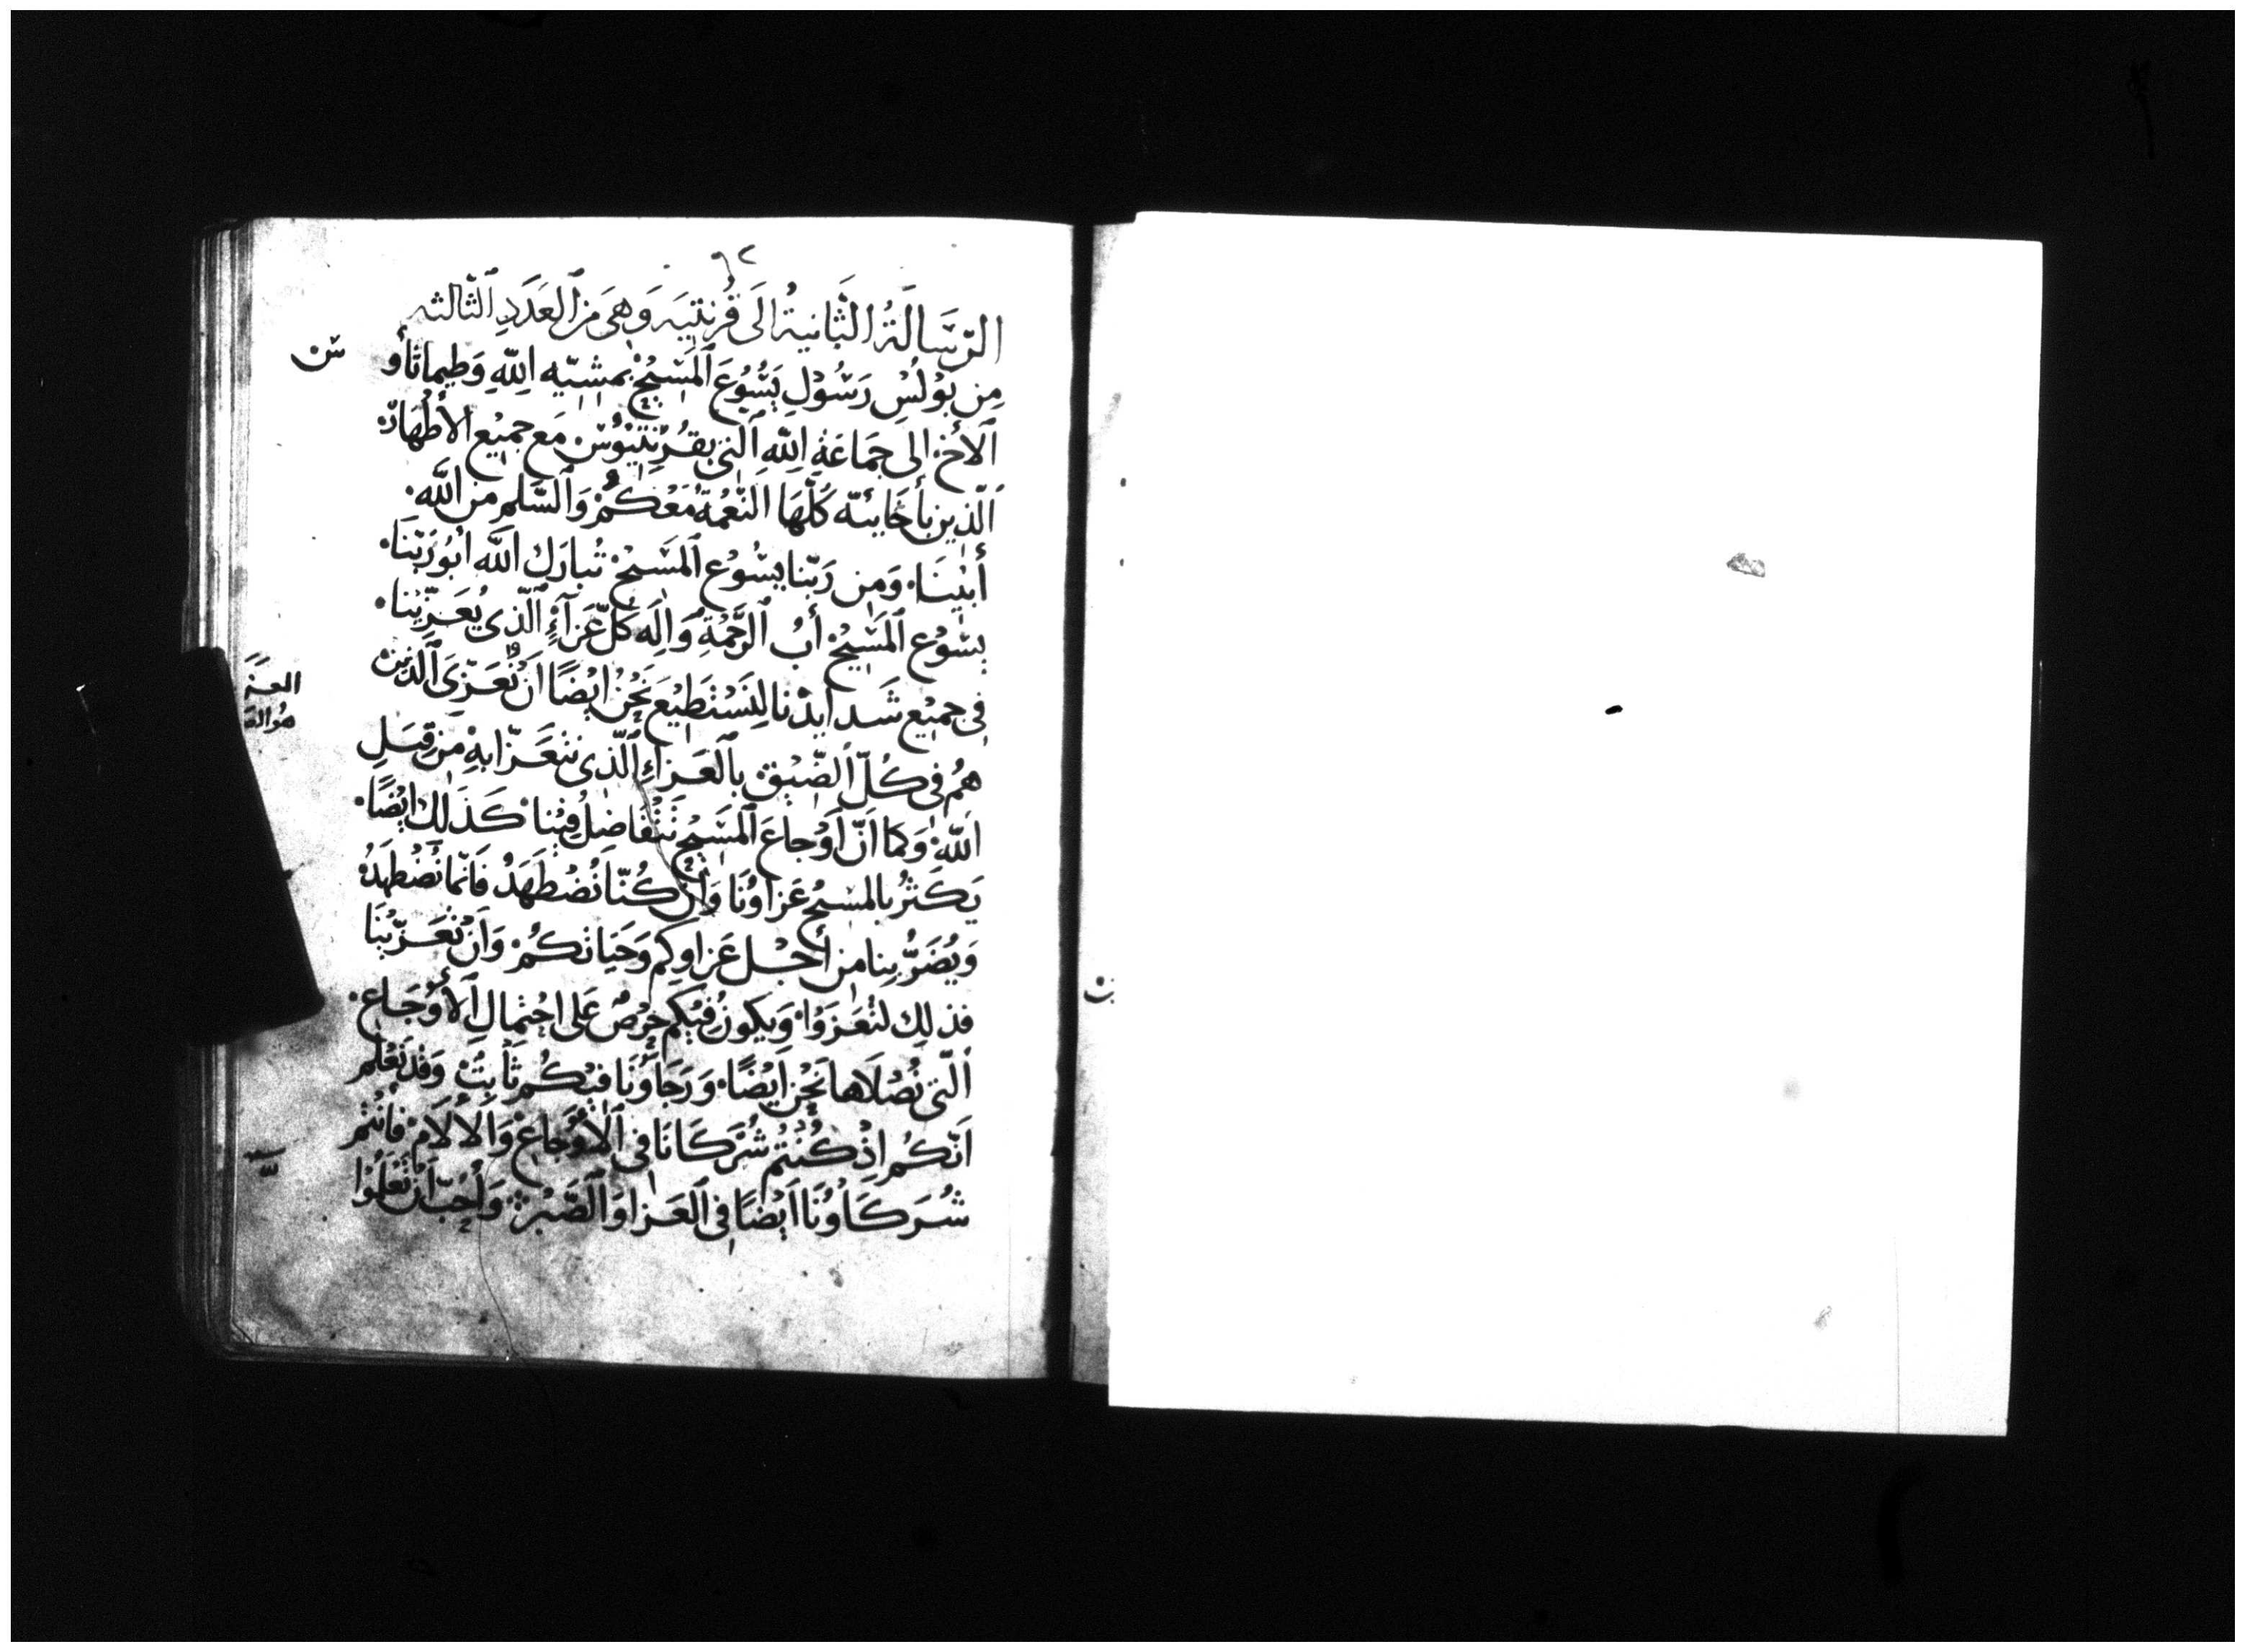 الرّسَالَةُ الثَّانيةُ الَى قُرنتِيَه وَهىَ مَن العَدَدِ الثّالثه
مِن بَوْلُسِ رَسُوْلِ يَسُوْعَ المَسِيْحِ بمشيّه اللهِ وَطِيماثَأوُ
الأخ. الى جمَاعَةِ اللهِ الّتى بقُرِنْتِيُوْسَ. مَع جميْع الأطْهَارْ
الّذين بأخَايئه كُلّهَا النّعْمَةُ مَعْكُمْ وَالسّلم من اللّه.
أبيْنَا. وَمِن رَبّنا يسُوْع المَسَيحْ تُبارَك اللّه ابُورَبّنَا.
يسُوْع المَسِيْح أبُ الرَّحْمَةِ وَالِهَ كُلّ عَزآءٍ الّذى يُعَزّيْنا.
فى جميْع شَدايدْنا لِنَسْتطِيْعَ نَحْنُ ايْضًا انْ نُعَزّىَ الّذين
هُمْ فى كُلّ الضّيْق بالعَزاءِ الّذى نتعَزّا بهِ مَن قِبَلِ
اللّه وَكما انّ اَوْجاعَ المَسَيْحِ تَتَفاضلُ فِيْنا. كَذَلِك ايْضًا.
يَكَثرُ بالمسيْح عَزاوُنَا وَان كُنّا نُضْطَهَدْ فَانّما نُضْطَهَدُ
وَيُضَرُّ بِنا من أجْل عَزاوِكم وَحَيَاتكُمْ وَانْ نُعَزّيْنَا
فذلِك لتُعَزَوْا. وَيكونُ فِيْكم حِرْصٌ عَلى احْتِمالِ الأوْجَاع.
الّتى نُصْلَاها نَحْن اَيْضًا. وَرَجَاوُنَا فيْكُم ثَابِتٌ وَقدْ نَعْلَم
انّكُم اِذْ كُنْتم شُرَكَانَا فى الْأوْجَاعْ وَالالَام فأنتم
شُرَكَاوُنَا ايْضًا فى العَزا وَالصّبْر. وَاُحِبّ أنْ تَعْلَمُوْا